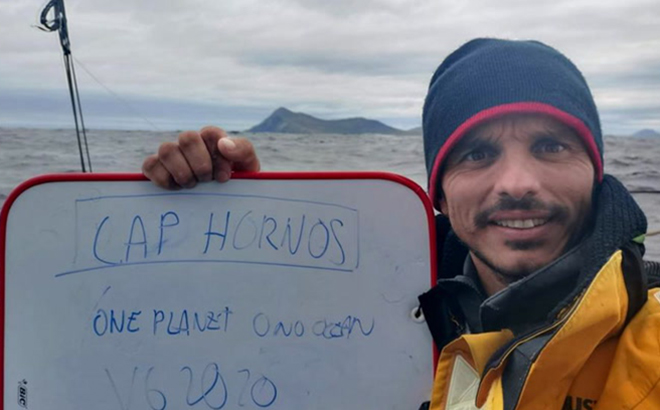 CAP HORNOS
ONE PLANET ONO OCEAN
VG 2020
BIC